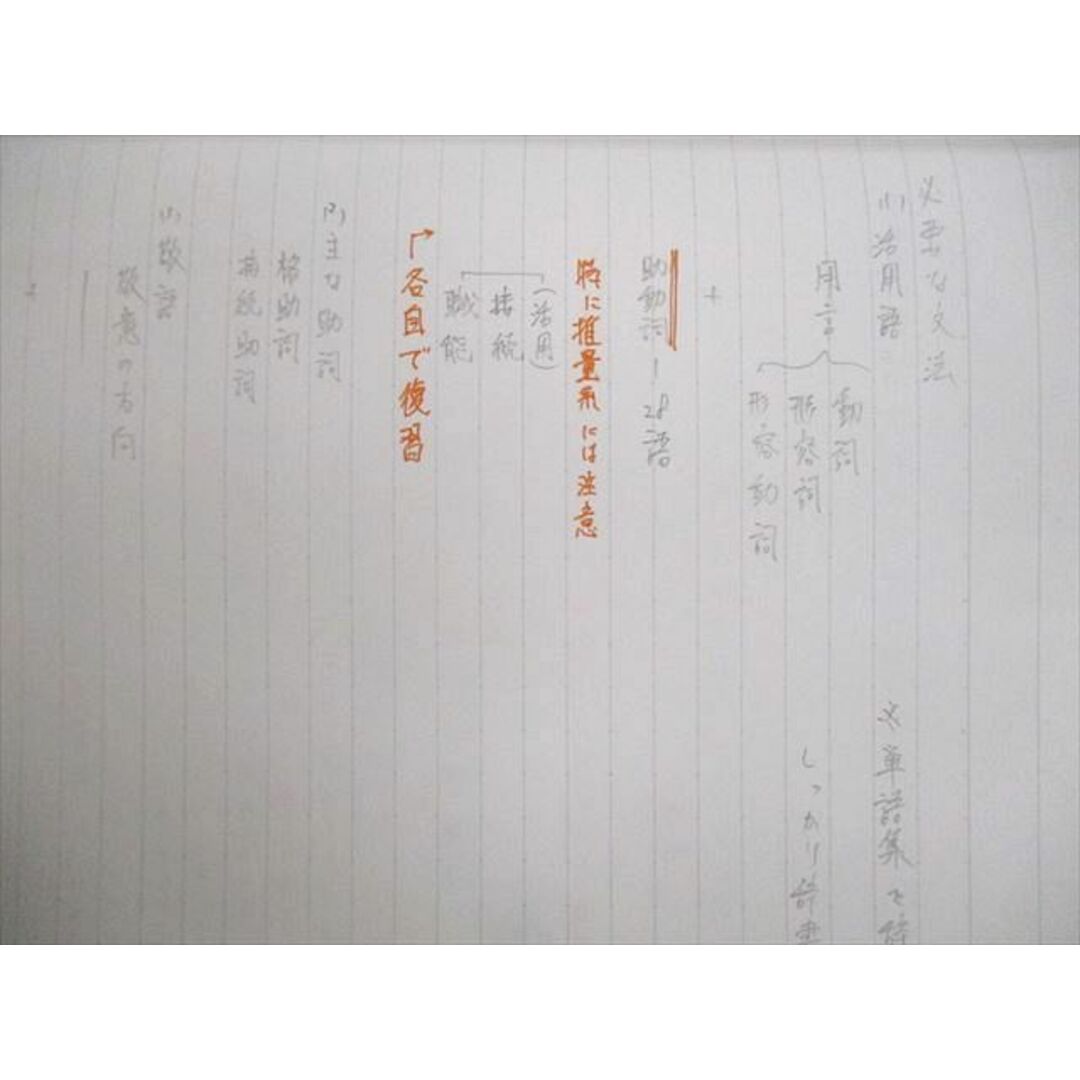 必要な文法
(1) 活用語
用言
動詞
形容詞
形容動詞
+
助動詞 ー 28語
特に推量系には注意
(活用)
接続
職能
各自で復習
(2) 主な助詞
格助詞
接続助詞
敬語
敬意の方向
※ 単語集で
しっかり辞書